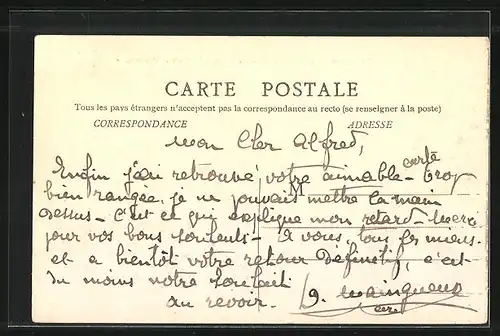 CARTE POSTALE
Tous les pays étrangers n'acceptent pas la correspondance au recto (se renseigner à la poste)
CORRESPONDANCE ADRESSE
Mon Cher Alfred,
Enfin j'ai retrouvé votre aimable carte trop
M
bien rangée, je ne pouvais mettre la main
dessus - C'est ce qui explique mon retard - Merci
pour vos bons souhaits - À vous, tous les miens
et a bientôt votre retour definitif, c'est
du moins notre souhait
au revoir.